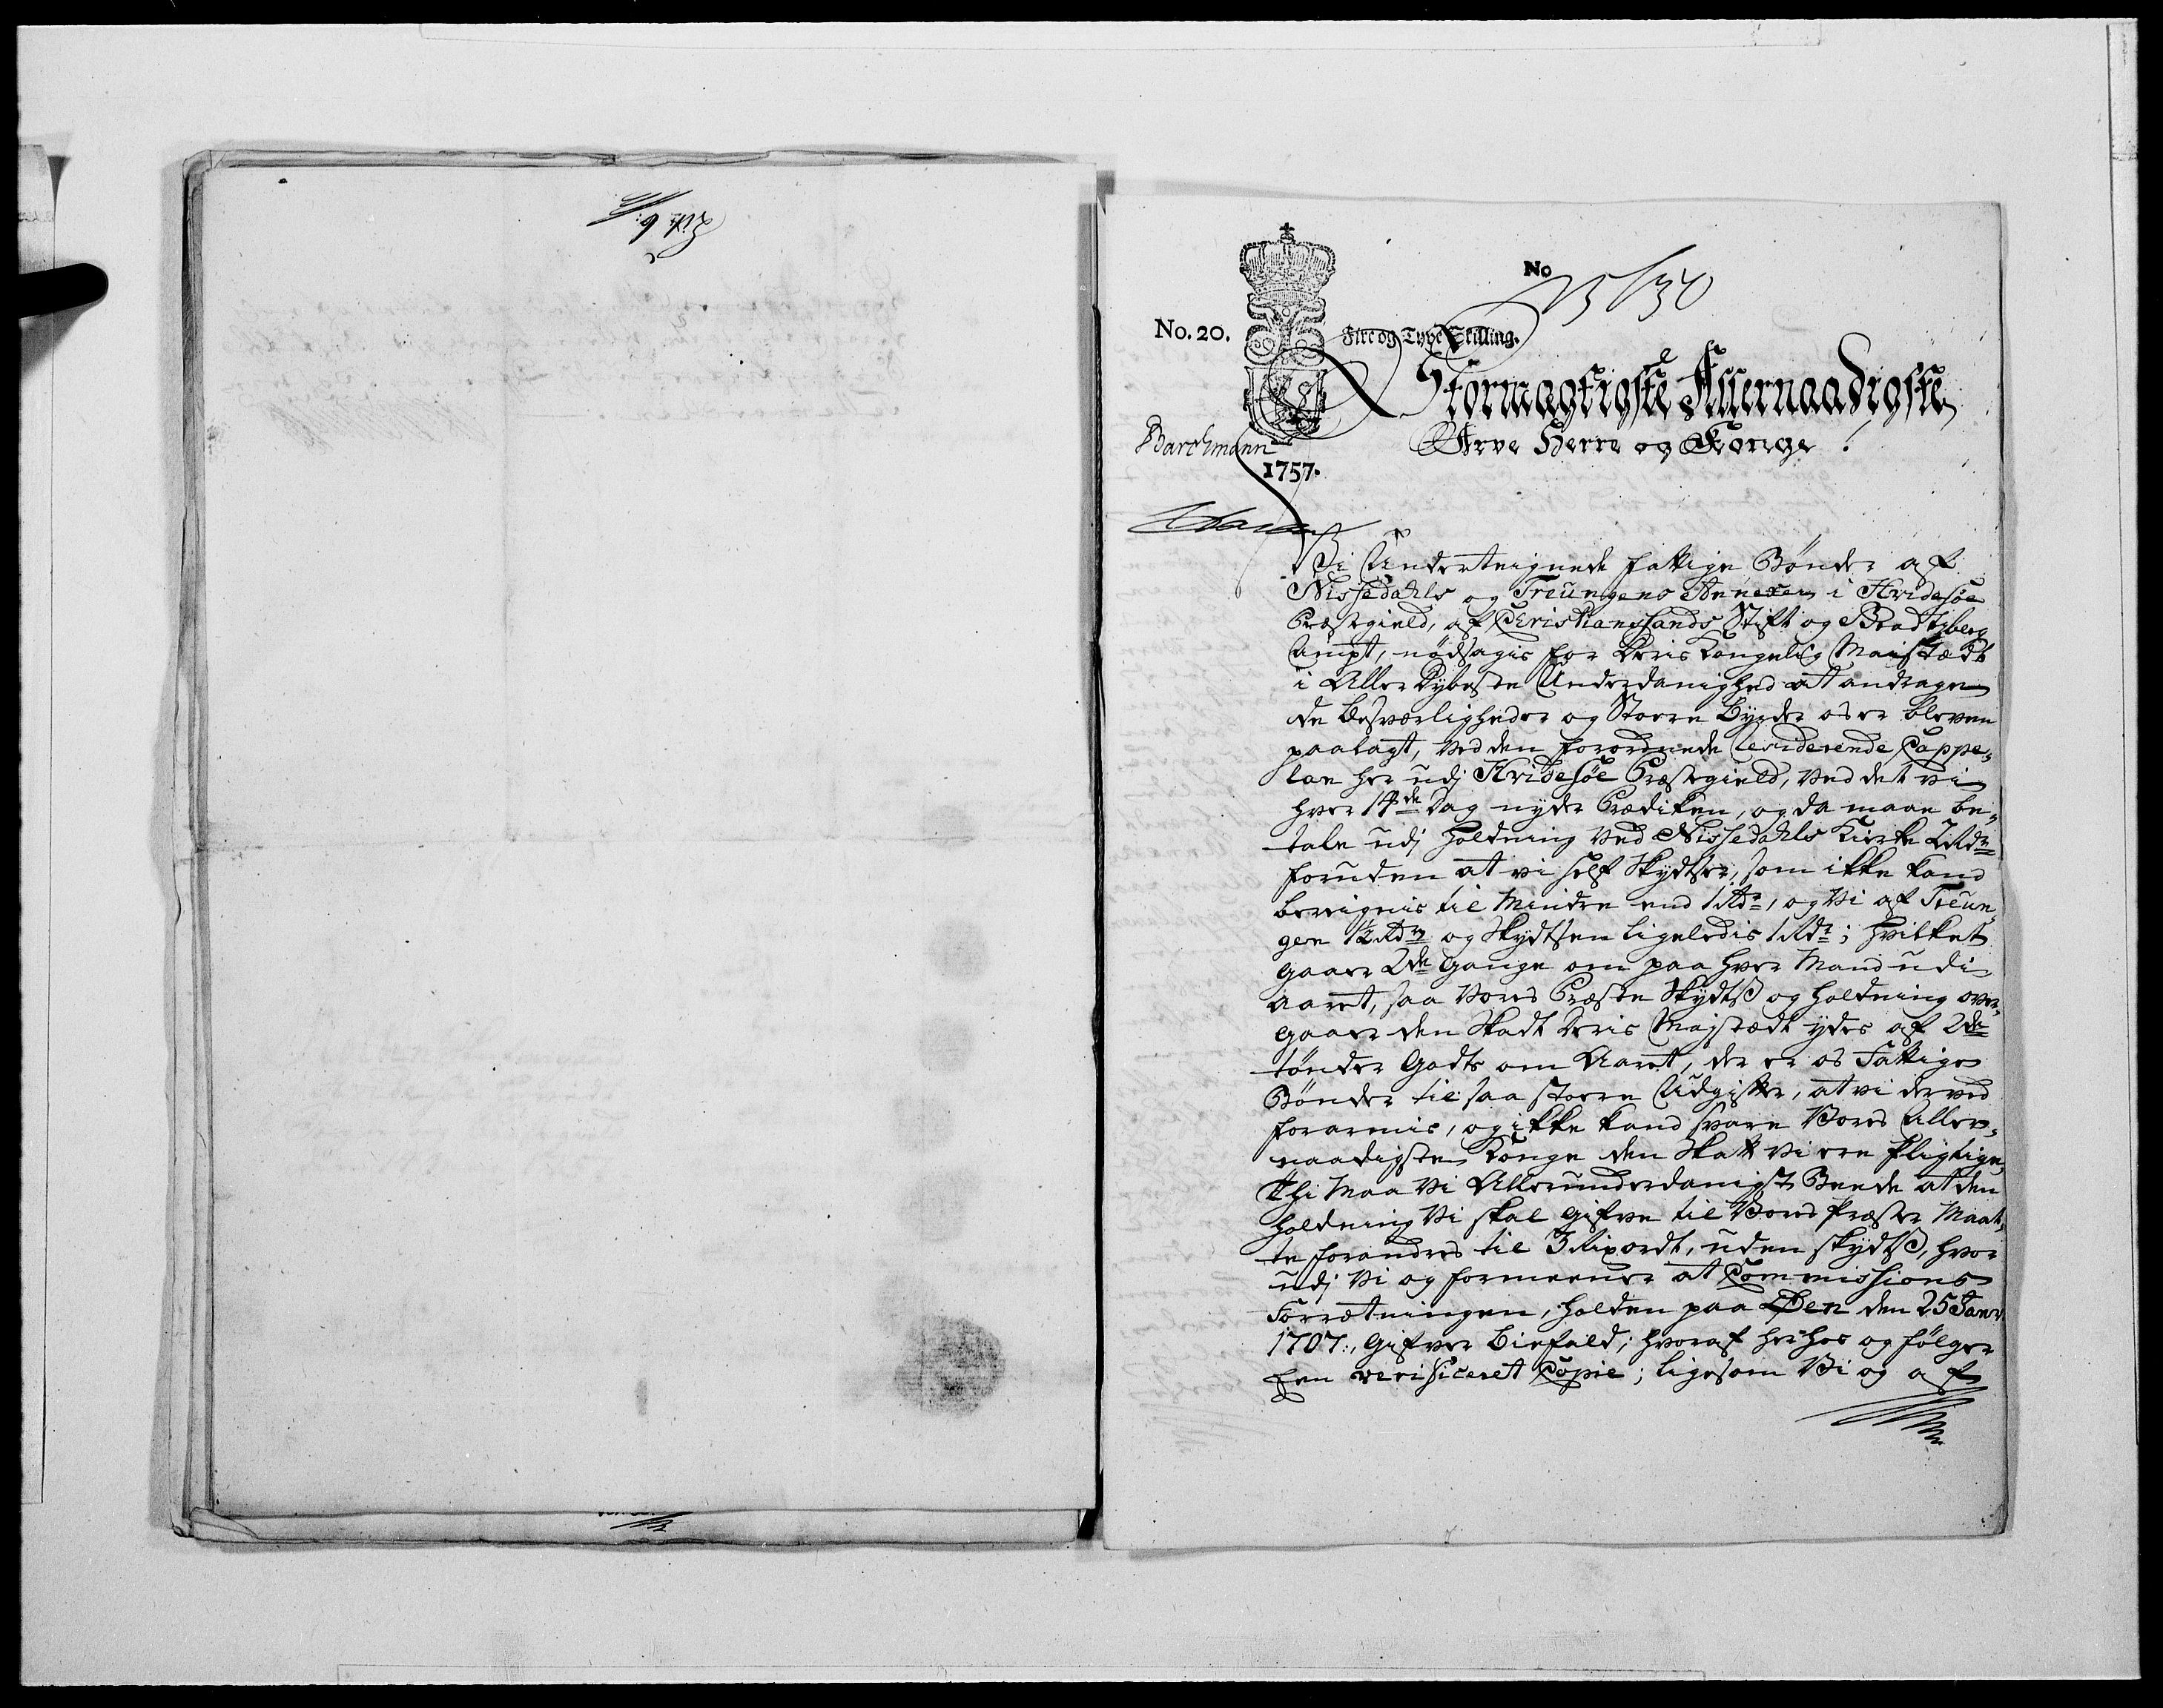 No
No. 20.
Fire og Tyve Skilling.
Stormægtigste Allernaadigste
Arve Herre og Konge!
Barchmann
1757.
Vi Underteignede fattige Bønder af
Nissedahls og Treungens Annexer i Hvidesøe
Præstegield, af Christianssands Stift og Bradtsberg
Ampt, nødsagis for Deris Kongelig Maistædt
i Aller Dybeste Underdanighed at andrage
de besværligheder og Stoere byrder os er bleven
paalagt, ved den forordnede residerende Cappe-
lan her udj Hvidesøe Præstegield, ved det vi
hver 14de Dag nyder Prædiken, og da maae be-
tale udj holdning ved Nissedahls Kirke 2 Rdr
foruden at vi self Skydtser, som ikke kand
bereignis til Mindre end 1 Rdr, og Vi af Treun-
gen 1½ Rdr og Skydtsen ligeledis 1 Rdr; hvilket
gaaer 2de Gange om paa hver Mand udi
Aaret, saa Vores Præste Skydts og holdning over-
gaaer den Skadt Deris Majstædt ydes af 2de
tønder Godts om Aaret, der er os Fattige
Bønder til saa stoere Udgifter, at vi derved
forarmis, og ikke kand svare Vores Aller-
naadigste Konge den Skatt Vi ere pligtige,
Thi Maa Vi Allerunderdanigst Beede at den
holdning Vi skal gifve til Vores Præster Maat-
te forandres til 3 Rixordt, uden skydts, hvor
udj Vi og formeener at Commissions
Forrætningen, holden paa den 25 Janr
1707, gifver biefald; hvoraf herhos og følger
een verificeret Copie; ligesom Vi og af